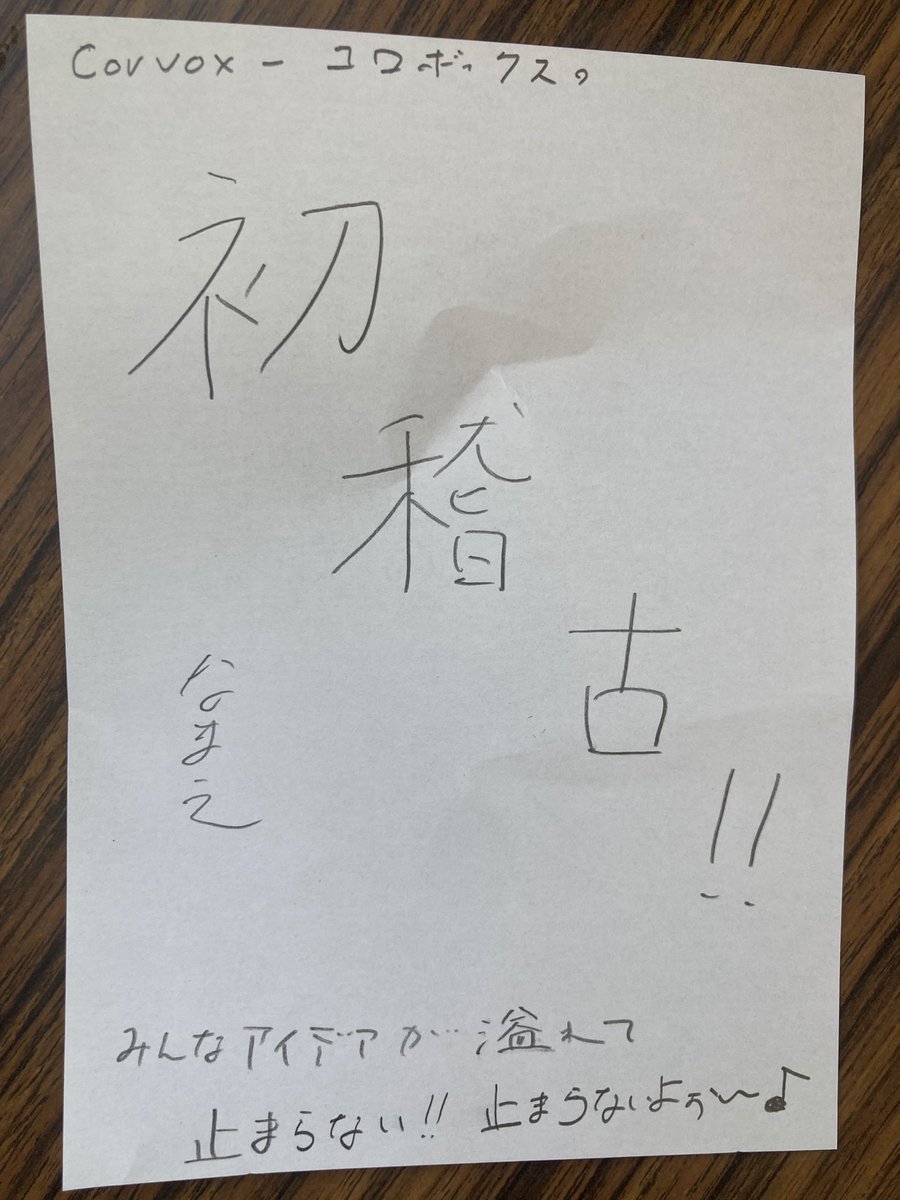 Corvox - コロボックスの
初稽古!!
なまえ
みんなアイデアが溢れて
止まらない!! 止まらないよぉ〜♪